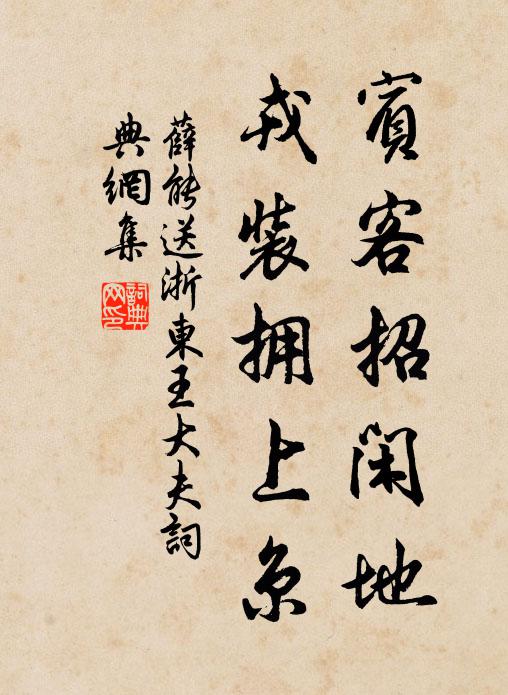 賓客招閑地
戎裝擁上京
薛能送浙東王大夫詞
典網集
詞典网印